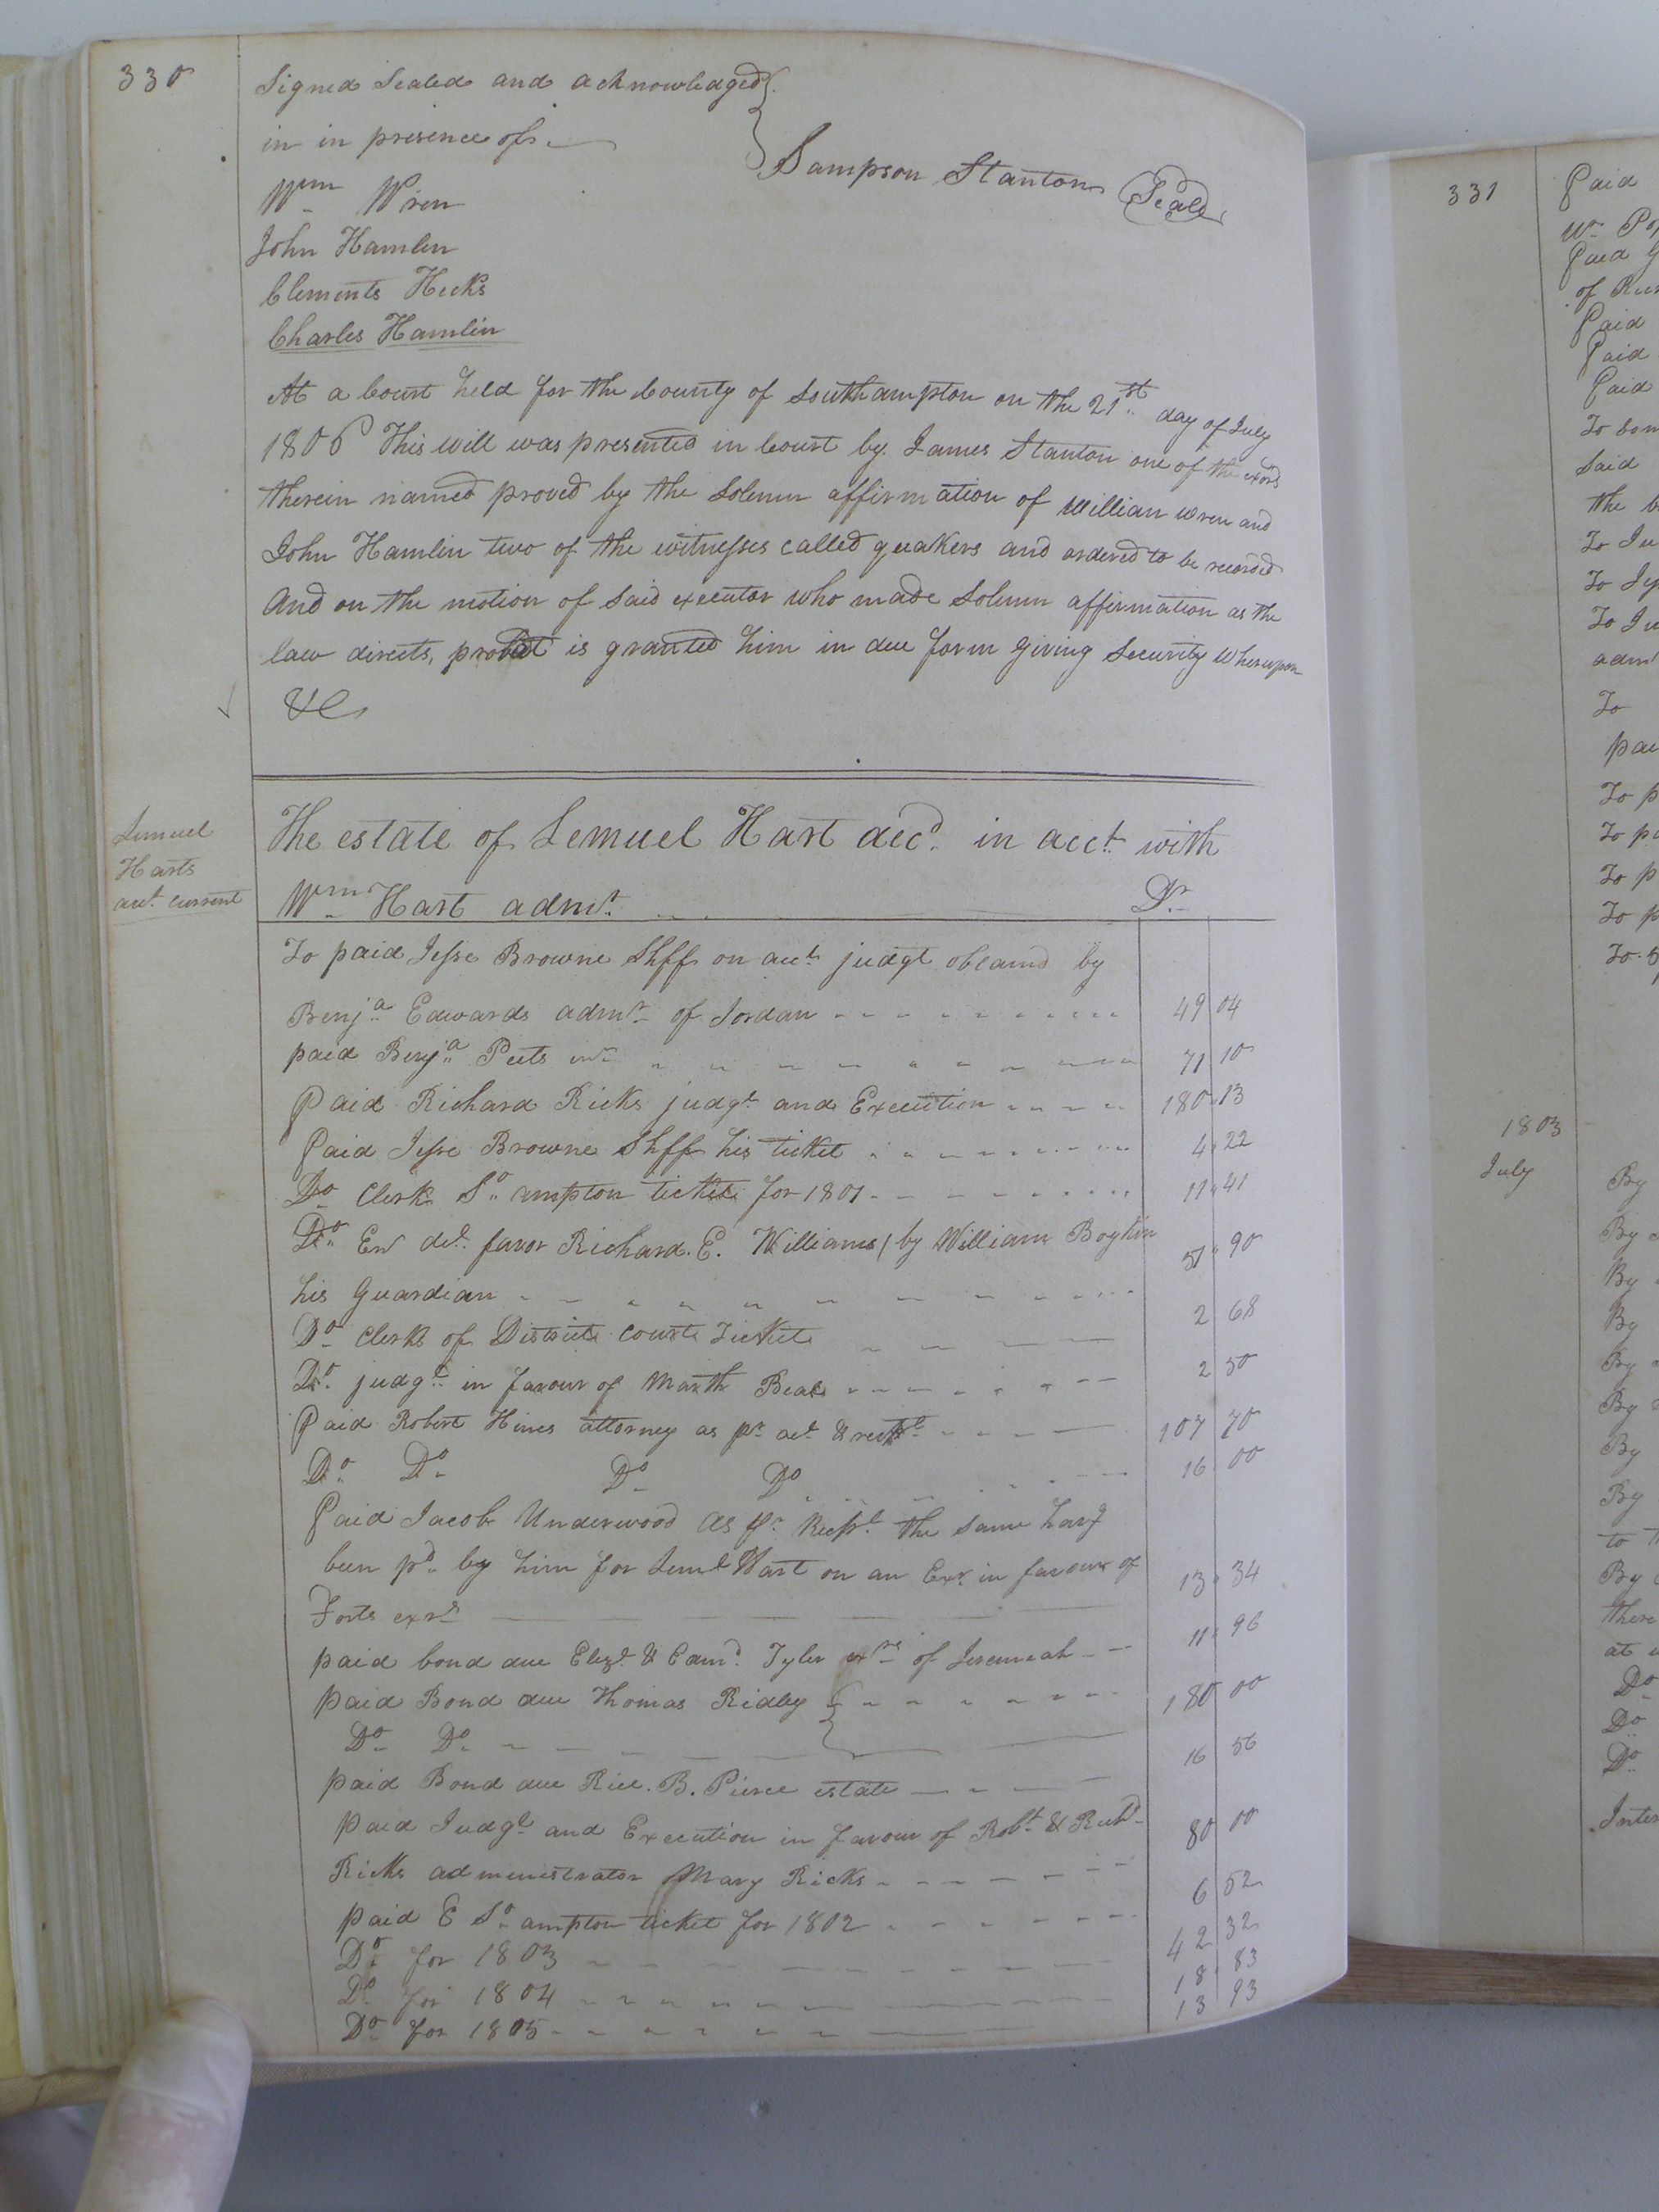 330
Signed Sealed and acknowledged
in in presence of
Sampson Stanton Seal
Wm Wren
John Hamlin
Clements Hicks
Charles Hamlin
At a Court held for the County of Southampton on the 21st day of July
1806 This will was presented in Court by James Stanton one of the exors
therein named proved by the Solemn affirmation of William Wren and
John Hamlin two of the witnesses called quakers and ordered to be recorded
And on the motion of Said executor who made Solemn affirmation as the
law directs, probat is granted him in due form Giving Security Whereupon
&c
Lemuel
Harts
acct. current
The estate of Lemuel Hart decd. in acct. with
Wm Hart admr. Dr
To paid Jesse Browne Shff on acct. judgt obtaind by
Benja Edwards admr of Jordan 49 04
paid Benja Peets 71 10
Paid Richard Ricks judgt. and Execution 180 13
Paid Jesse Browne Shff his ticket 4 22
Do Clerk So ampton tickets for 1801 11 41
Do favor Richard. E. Williams by William Boykin
his Guardian 51 90
Do Clerk of District Court Tickets 2 68
Do. judgt. in favour of Marth Beal 2 50
Paid Robert Hines attorney as pr act & rect. 107 70
Do Do Do Do 16 00
Paid Jacob Underwood as pr Recpt. the same havg
been pd. by him for Leml Hart on an Exr. in favour of
Forts exrs 13 34
paid bond due Elizt. & Edmd. Tyler exrs of Jeremiah 11 96
paid Bond due Thomas Ridley 180 00
Do Do
paid Bond due Rice. B. Pierce estate 16 56
paid Judgt and Execution in favour of Robt & Richd
Ricks administrator Mary Ricks 80 00
paid E So ampton ticket for 1802 6 52
Do for 1803 42 32
Do for 1804 18 83
Do for 1805 13 93
331
Paid
Wm
Paid
of
Paid
Paid
Paid
To
Said
the
To
To
To
adm
To
To
To
To
To
To
1803
July
By
By
By
By
By
By
By
By
to
By
there
at
Do
Do
Do